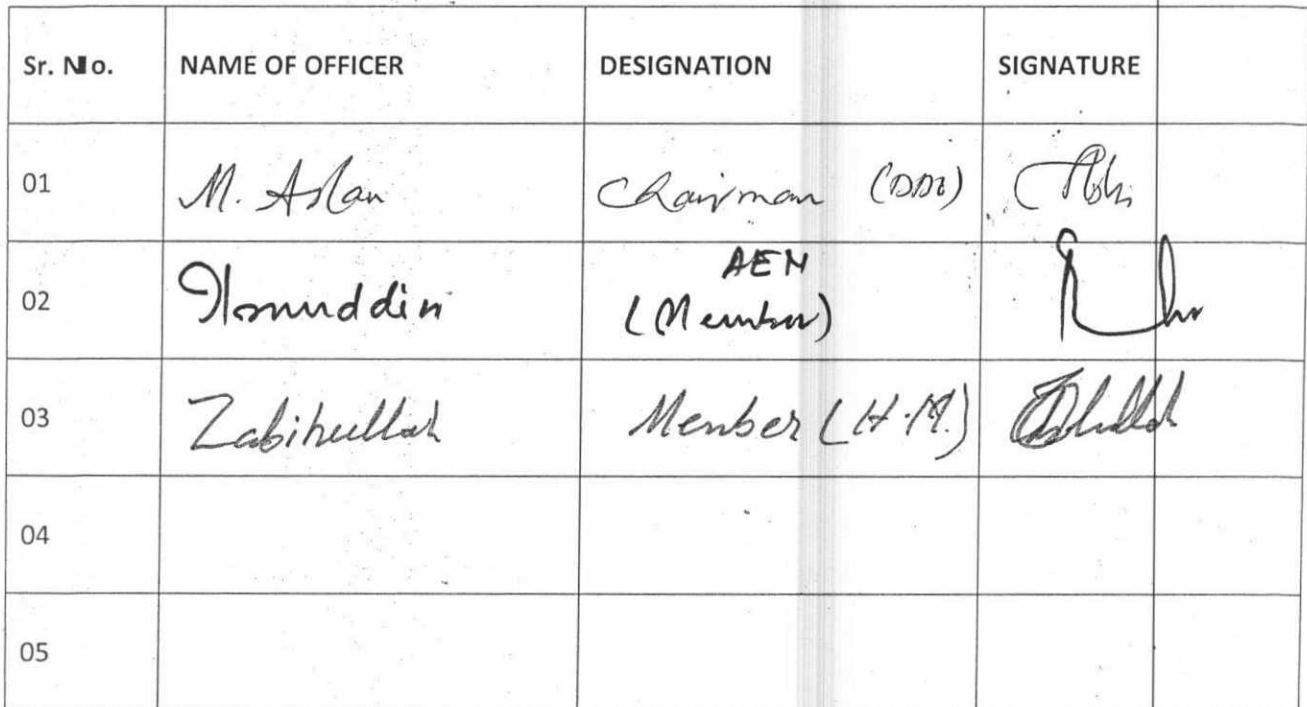 Sr. No. NAME OF OFFICER DESIGNATION SIGNATURE
01 M. Aslan Chairman (DDO)
AEM
02 (Member)
03 Zabihullah Member (H.M.)
04
05